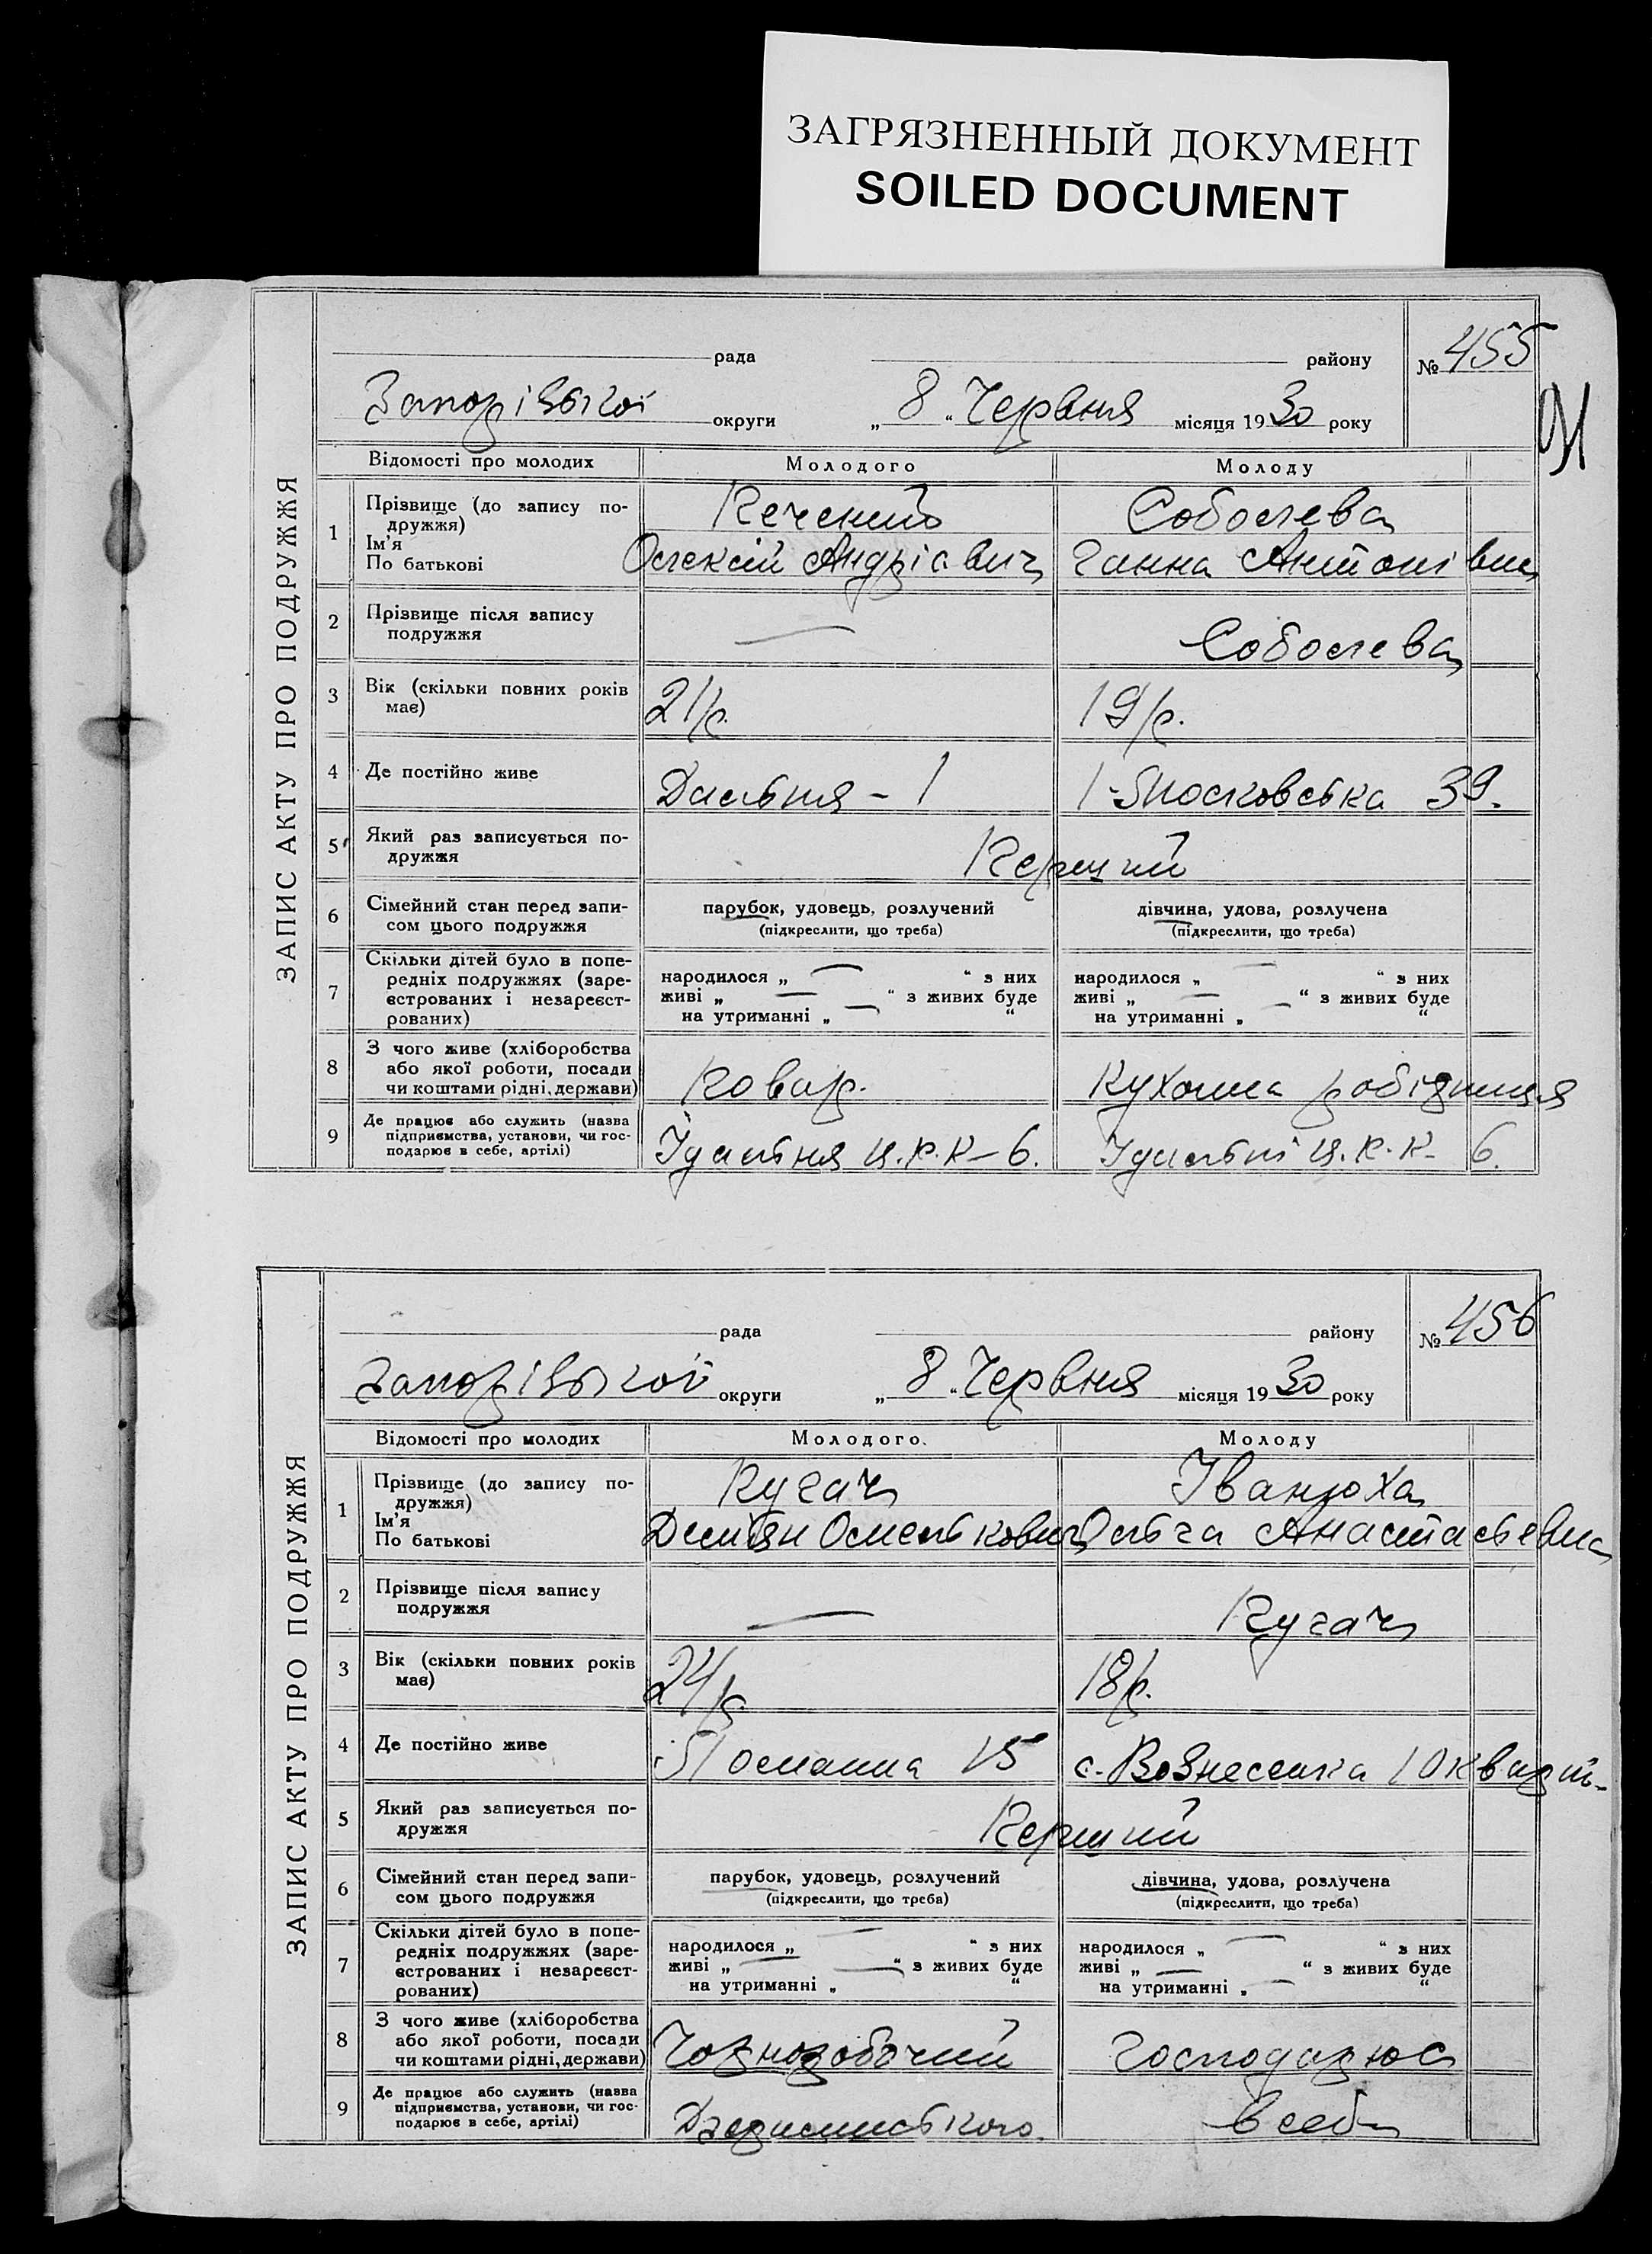 ЗАГРЯЗНЕННЫЙ ДОКУМЕНТ
SOILED DOCUMENT
ЗАПИС АКТУ ПРО ПОДРУЖЖЯ
рада району № 455
91
округи „ 8 “ Червня місяця 19 30 року
Відомості про молодих Молодого Молоду
1 Прізвище (до запису по-
дружжя)
Ім'я
По батькові
Соболева
Олексій Андрієвич Ганна Антонівна
2 Прізвище після запису
подружжя
— Соболева
3 Вік (скільки повних років
має)
21/р. 19/р.
4 Де постійно живе
Дальня - 1 1-Московська 39.
5 Який раз записується по-
дружжя
Перший
6 Сімейний стан перед запи-
сом цього подружжя
парубок, удовець, розлучений дівчина, удова, розлучена
(підкреслити, що треба) (підкреслити, що треба)
7 Скільки дітей було в попе-
редніх подружжях (заре-
єстрованих і незареєст-
рованих)
народилося „ — “ з них народилося „ — “ з них
живі „ — — “ з живих буде живі „ — — “ з живих буде
на утриманні „ “ на утриманні „ “
8 З чого живе (хліборобства
або якої роботи, посади
чи коштами рідні, держави)
Повар. Кухонна робітниця
9 Де працює або служить (назва
підприємства, установи, чи гос-
подарює в себе, артілі)
Їдальня Ц.Р.К-6. Їдальні Ц.Р.К- 6.
ЗАПИС АКТУ ПРО ПОДРУЖЖЯ
рада району № 456
округи „ 8 “ Червня місяця 19 30 року
Відомості про молодих Молодого. Молоду
1 Прізвище (до запису по-
дружжя)
Ім'я
По батькові
Пугач Іванюха
Ольга Анастасьевна
2 Прізвище після запису
подружжя
— Пугач
3 Вік (скільки повних років
має)
24/р. 18/р.
4 Де постійно живе
15 с. Вознесенка 10 кварт.
5 Який раз записується по-
дружжя
Перший
6 Сімейний стан перед запи-
сом цього подружжя
парубок, удовець, розлучений дівчина, удова, розлучена
(підкреслити, що треба) (підкреслити, що треба)
7 Скільки дітей було в попе-
редніх подружжях (заре-
єстрованих і незареєст-
рованих)
народилося „ — “ з них народилося „ — “ з них
живі „ — — “ з живих буде живі „ — — “ з живих буде
на утриманні „ “ на утриманні „ “
8 З чого живе (хліборобства
або якої роботи, посади
чи коштами рідні, держави)
Чорноробочий Господарює
9 Де працює або служить (назва
підприємства, установи, чи гос-
подарює в себе, артілі)
в себе